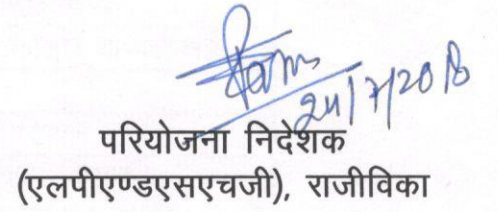 24/7/2018
परियोजना निदेशक
(एलपीएण्डएसएचजी), राजीविका